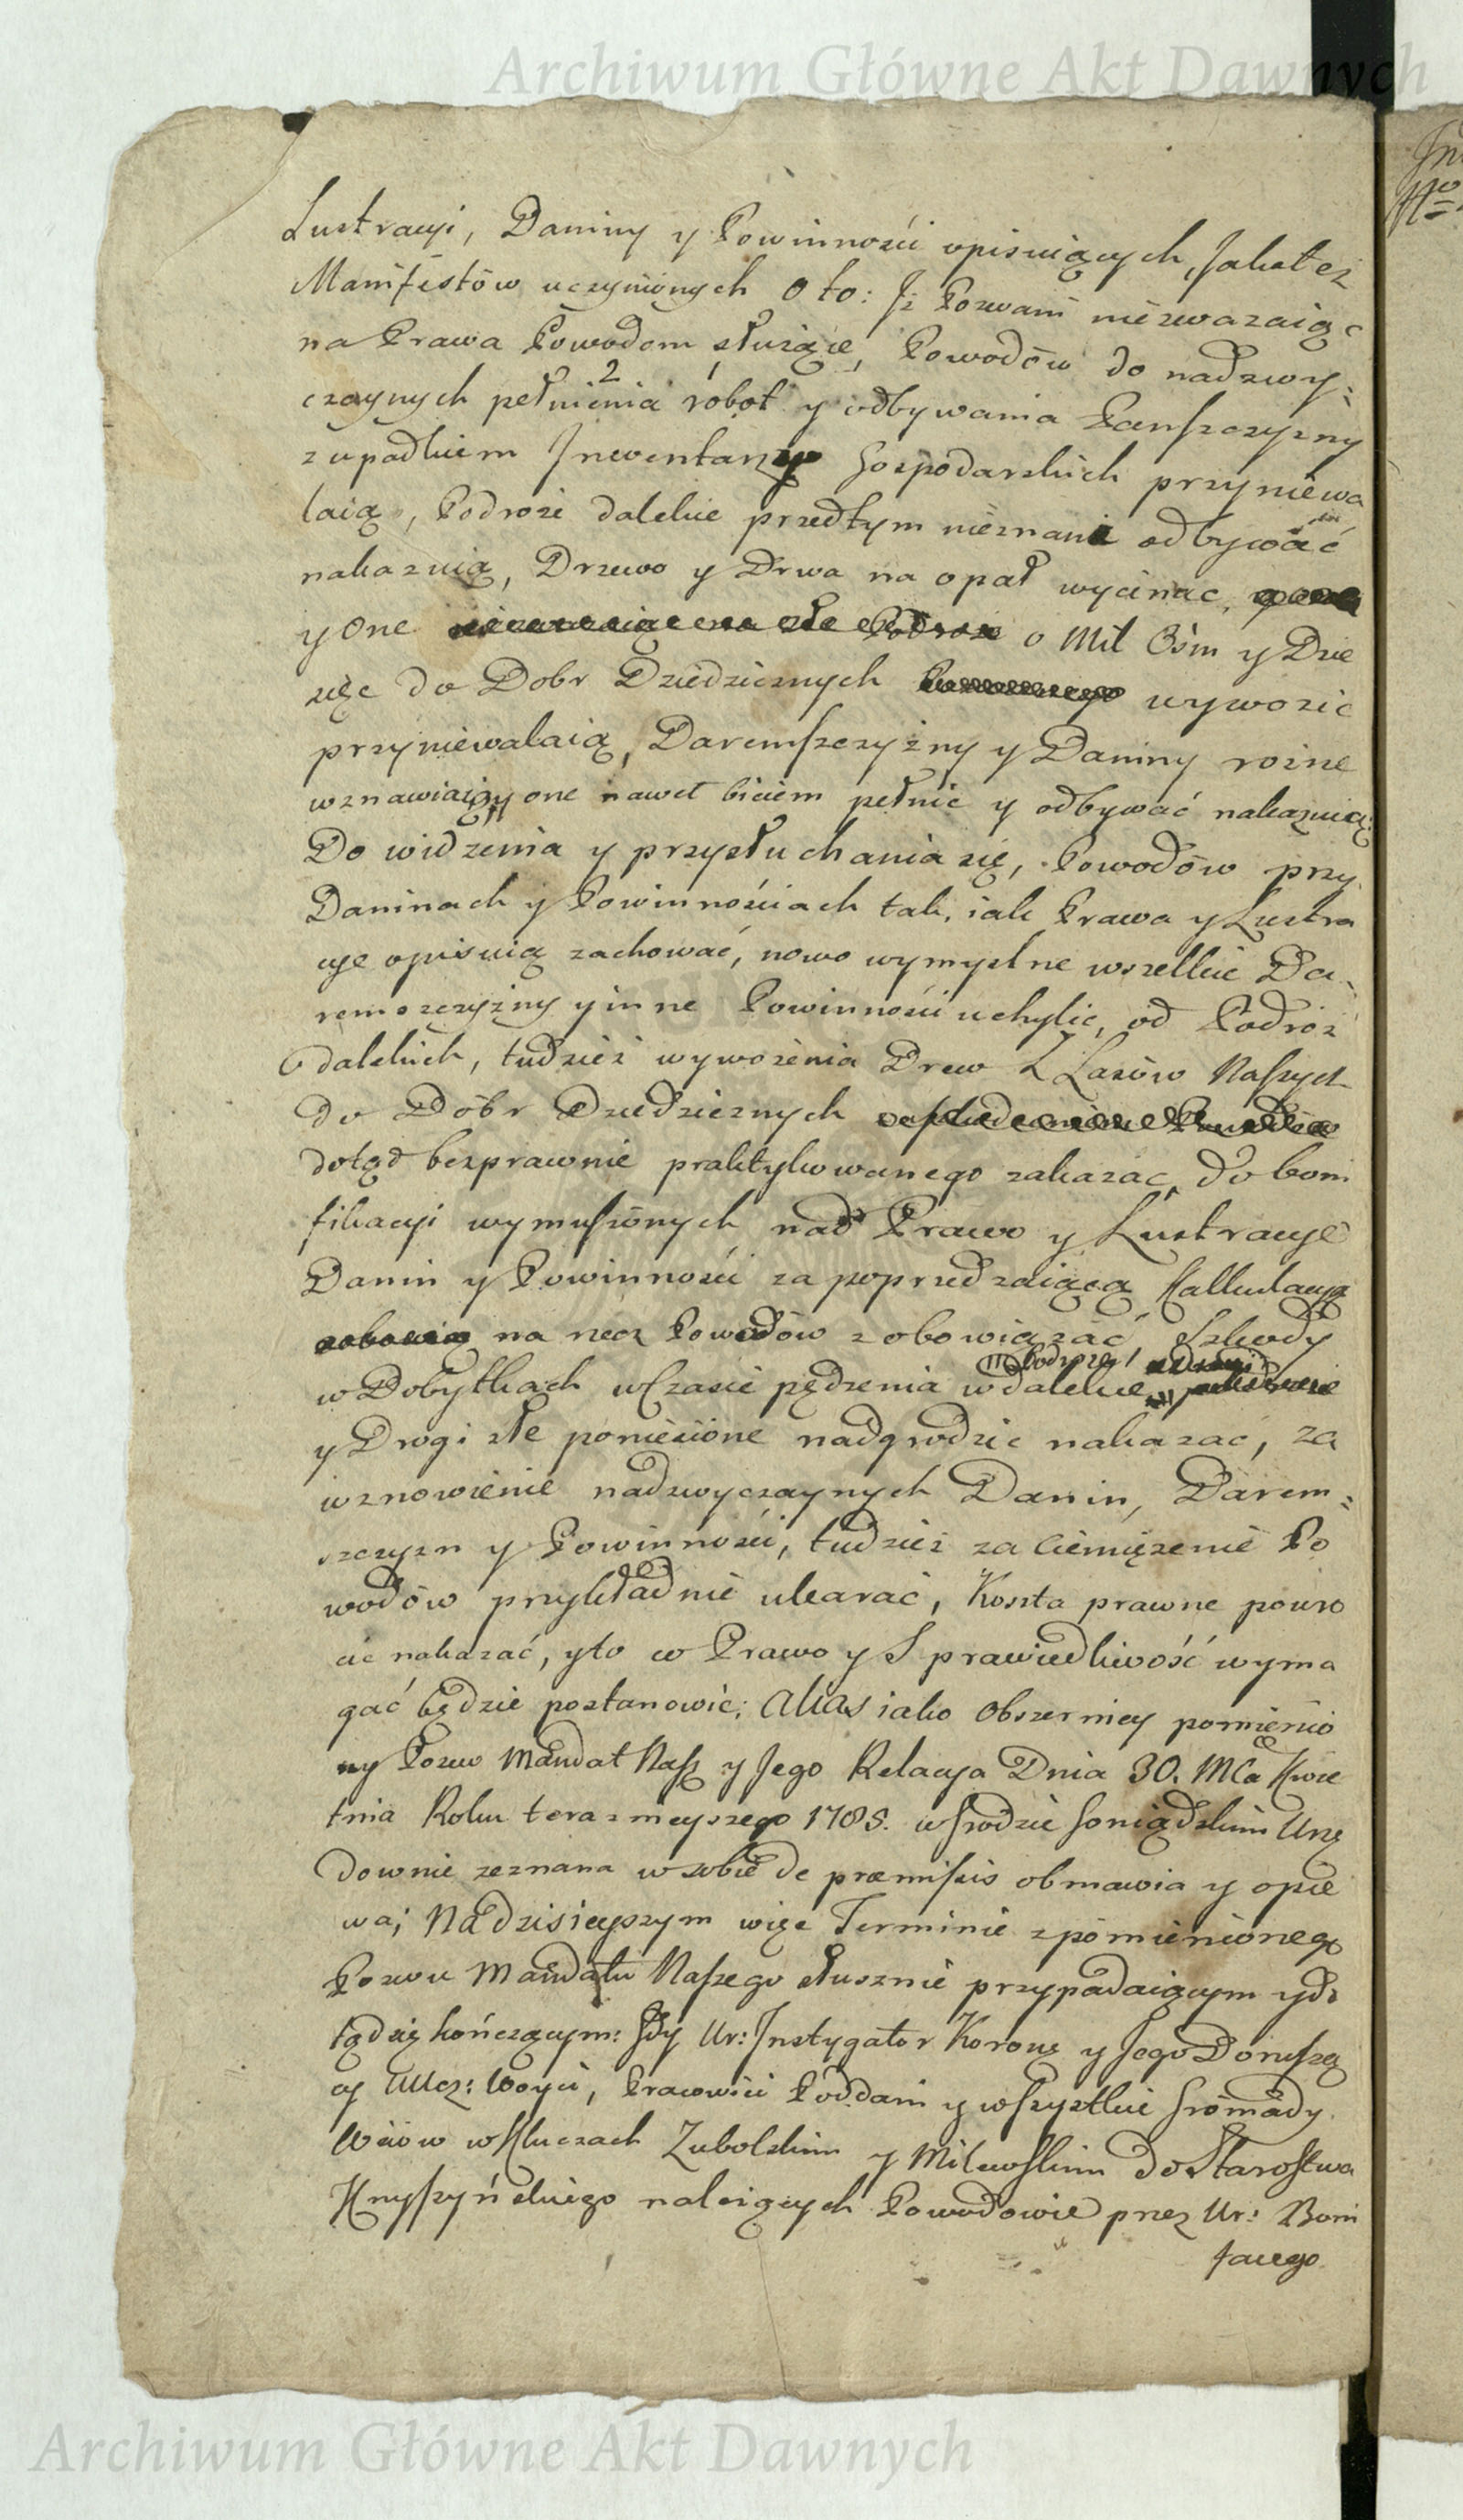 Archiwum Główne Akt Dawnych
Lustracyi, Daniny y Powinności opisuiących, Jakoteż
Manifestów uczynionych O to: Jż Pozwani niezwazaiąc
na Prawa Powodom służące, Powodów do nadzwy:
czaynych pełnienia 2 robot y odbywania Panszczyzny
z upadkiem Jnwentarzy Gospodarskich przyniewa
laią, Podroże dalekie przedtym nieznane odbywać
nakazuią, Drzewo y Drwa na opał wycinac,
y One o Mil Ośm y Dzie
więc do Dobr Dziedzicznych wywozic
przyniewalaią, Daremszczyzny y Daniny rożne
wznawiaią y one nawet biciem pełnic y odbywać nakazuią:
Do widzenia y przysłuchania się, Powodów przy
Daninach y Powinnościach tak, iak Prawa y Lustra
cye opisuią zachować, nowo wymyslne wszelkie Da,
remszczyzny y inne Powinności uchylic, od Podroż
dalekich, tudzież wywożenia Drew z Lasów Naszych
do Dóbr Dziedzicznych
dotąd bezprawnie praktykowanego zakazac, do boni
fikacyi wymuszonych nad Prawo y Lustracye
Danin y Powinności za poprzedzaiącą Kalkulacyą
na rzecz Powodów zobowiązać Szkody
w Dobytkach w Czasie pędzenia w dalekie Podroże
y Drogi złe poniesione nadgrodzic nakazać, za
wznowienie nadzwyczaynych Danin, Darem:
szczyzn y Powinności, tudzież za Ciemiężenie Po
wodów przykładnie ukarać, Koszta prawne powro
cic nakazać, y to co Prawo y Sprawiedliwość wyma
gać będzie postanowic; alias iako Obszerniey pomienio
ny Pozew Mandat Nasz y Jego Relacya Dnia 30. Mca Kwie
tnia Roku teraznieyszego 1785. w Grodzie Goniądzkim Urzę
downie zeznana w sobie de præmissis obmawia y opie
wa; Na dzisieyszym więc Terminie z pomienionego
Pozwu Mandatu Naszego słusznie przypadaiącym y do
tąd się kończącym: Gdy Ur: Jnstygator Korony y Jego Donoszą
cy Ucz: Woyci, Pracowici Poddani y wszystkie Gromady
Wsiow w Kluczach Zubolskim y Milewskim do Starostwa
Knyszyńskiego należących Powodowie przez Ur: Boni
facego
Archiwum Główne Akt Dawnych